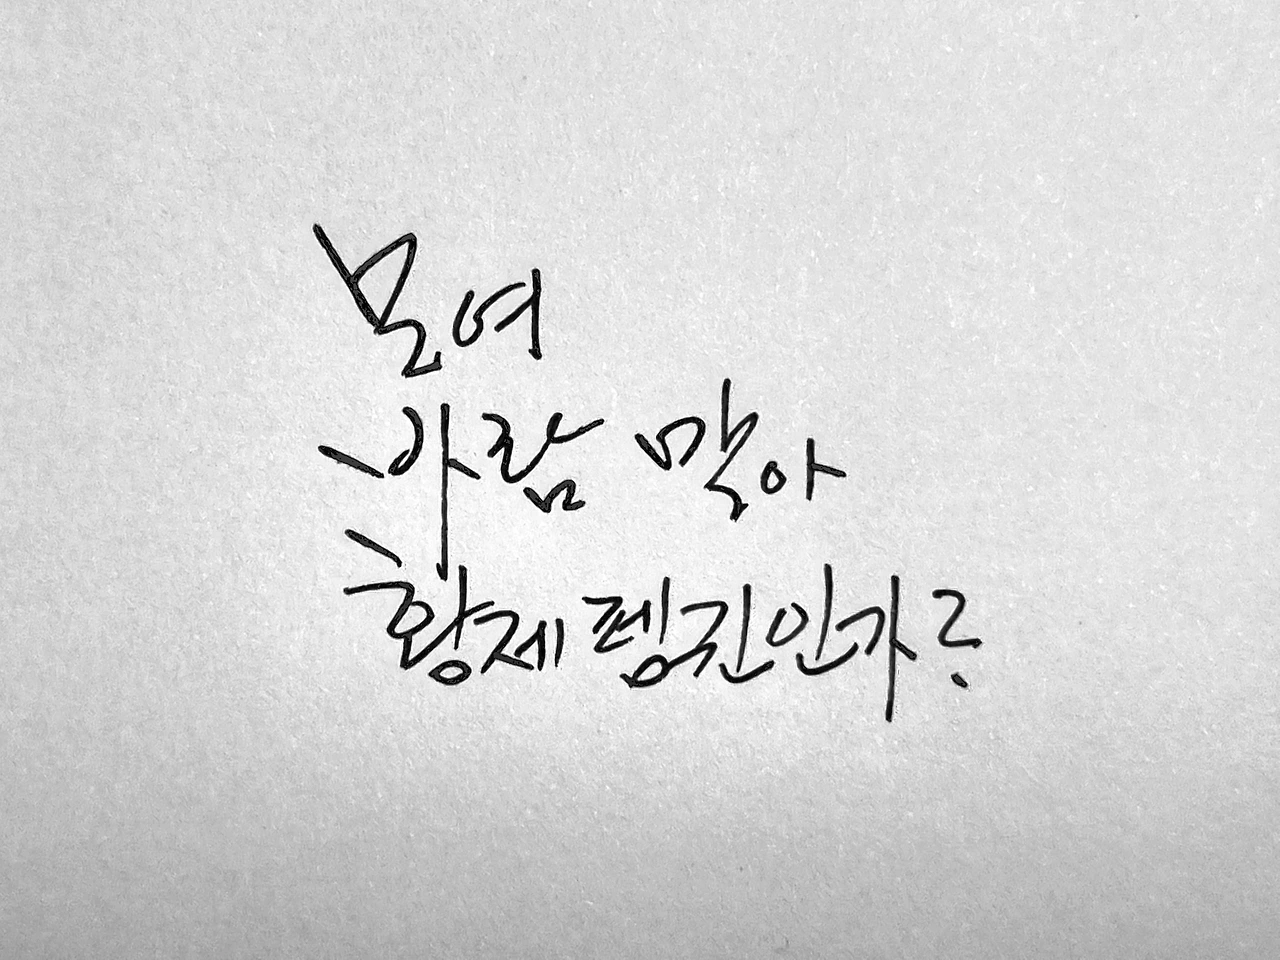 모여
바람 막아
황제펭귄인가?